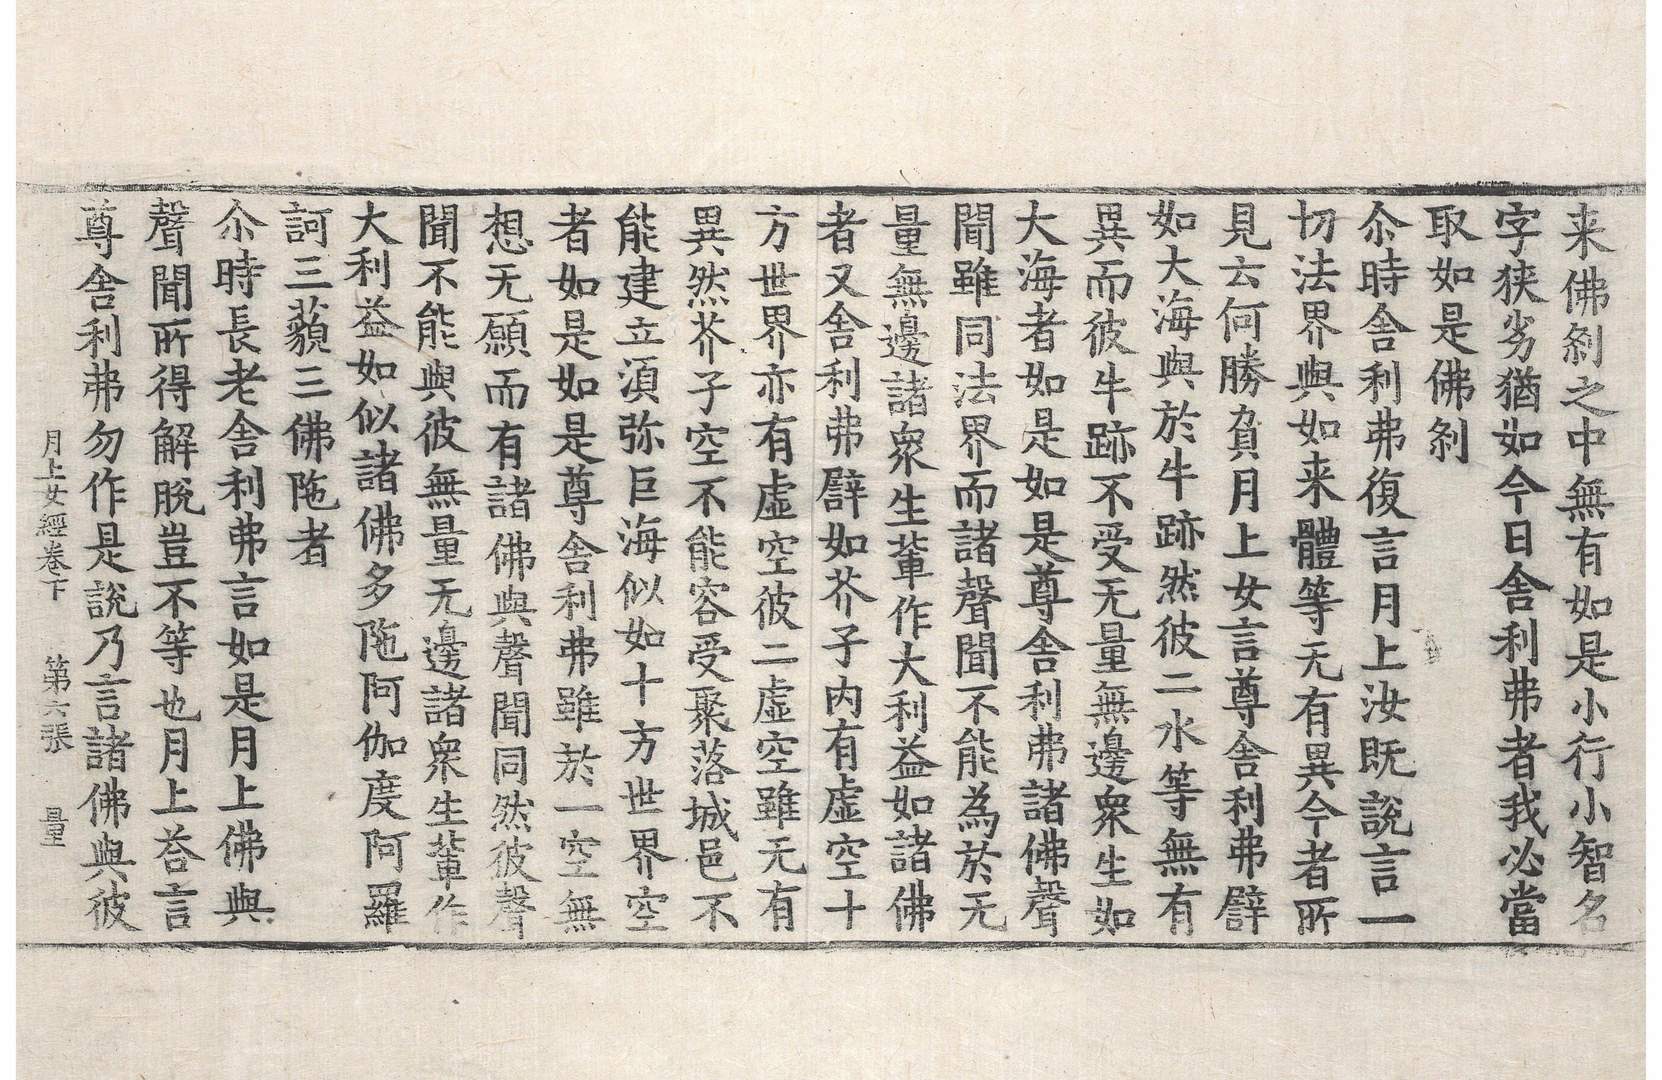 来佛刹之中無有如是小行小智名
字狭劣猶如今日舎利弗者我必當
取如是佛刹
尒時舎利弗復言月上汝既說言一
切法界與如来體等无有異今者所
見云何勝負月上女言尊舎利弗譬
如大海與於牛跡然彼二水等無有
異而彼牛跡不受无量無邊衆生如
大海者如是如是尊舎利弗諸佛聲
聞雖同法界而諸聲聞不能為於无
量無邊諸衆生輩作大利益如諸佛
者又舎利弗譬如芥子内有虛空十
方世界亦有虛空彼二虛空雖无有
異然芥子空不能容受聚落城邑不
能建立湏弥巨海似如十方世界空
者如是如是尊舎利弗雖於一空無
想无願而有諸佛與聲聞同然彼聲
聞不能與彼無量无邊諸衆生輩作
大利益如似諸佛多陁阿伽度阿羅
訶三藐三佛陁者
尒時長老舎利弗言如是月上佛與
聲聞所得解脫豈不等也月上荅言
尊舎利弗勿作是說乃言諸佛與彼
月上女經卷下　第六張　量